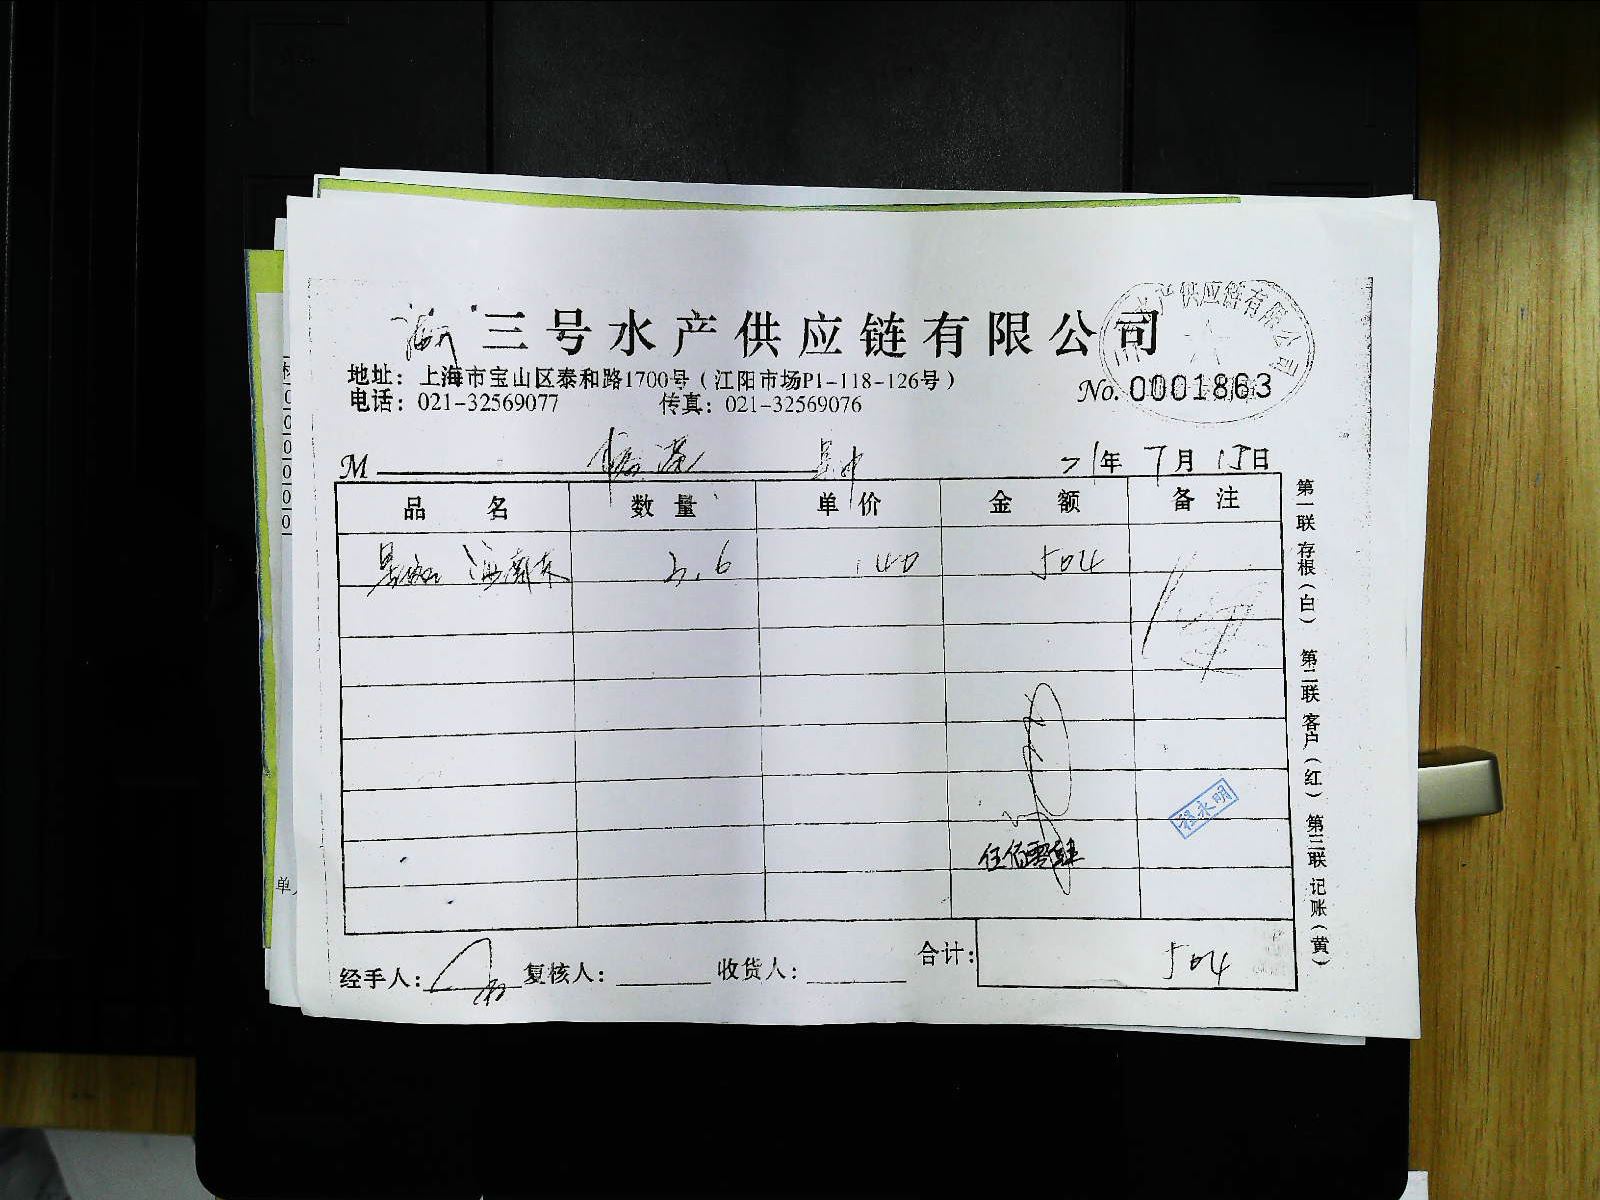 三号水产供应链有限公司
地址：上海市宝山区泰和路1700号（江阳市场P1-118-126号）
电话：021-32569077 传真：021-32569076
No. 0001863
水产供应链有限公司
M 21年7月15日
品名 数量 单价 金额 备注
3.6 140 504
程永明
伍佰零肆
合计： 504
经手人： 复核人： 收货人：
第一联 存根（白） 第二联 客户（红） 第三联 记账（黄）
单